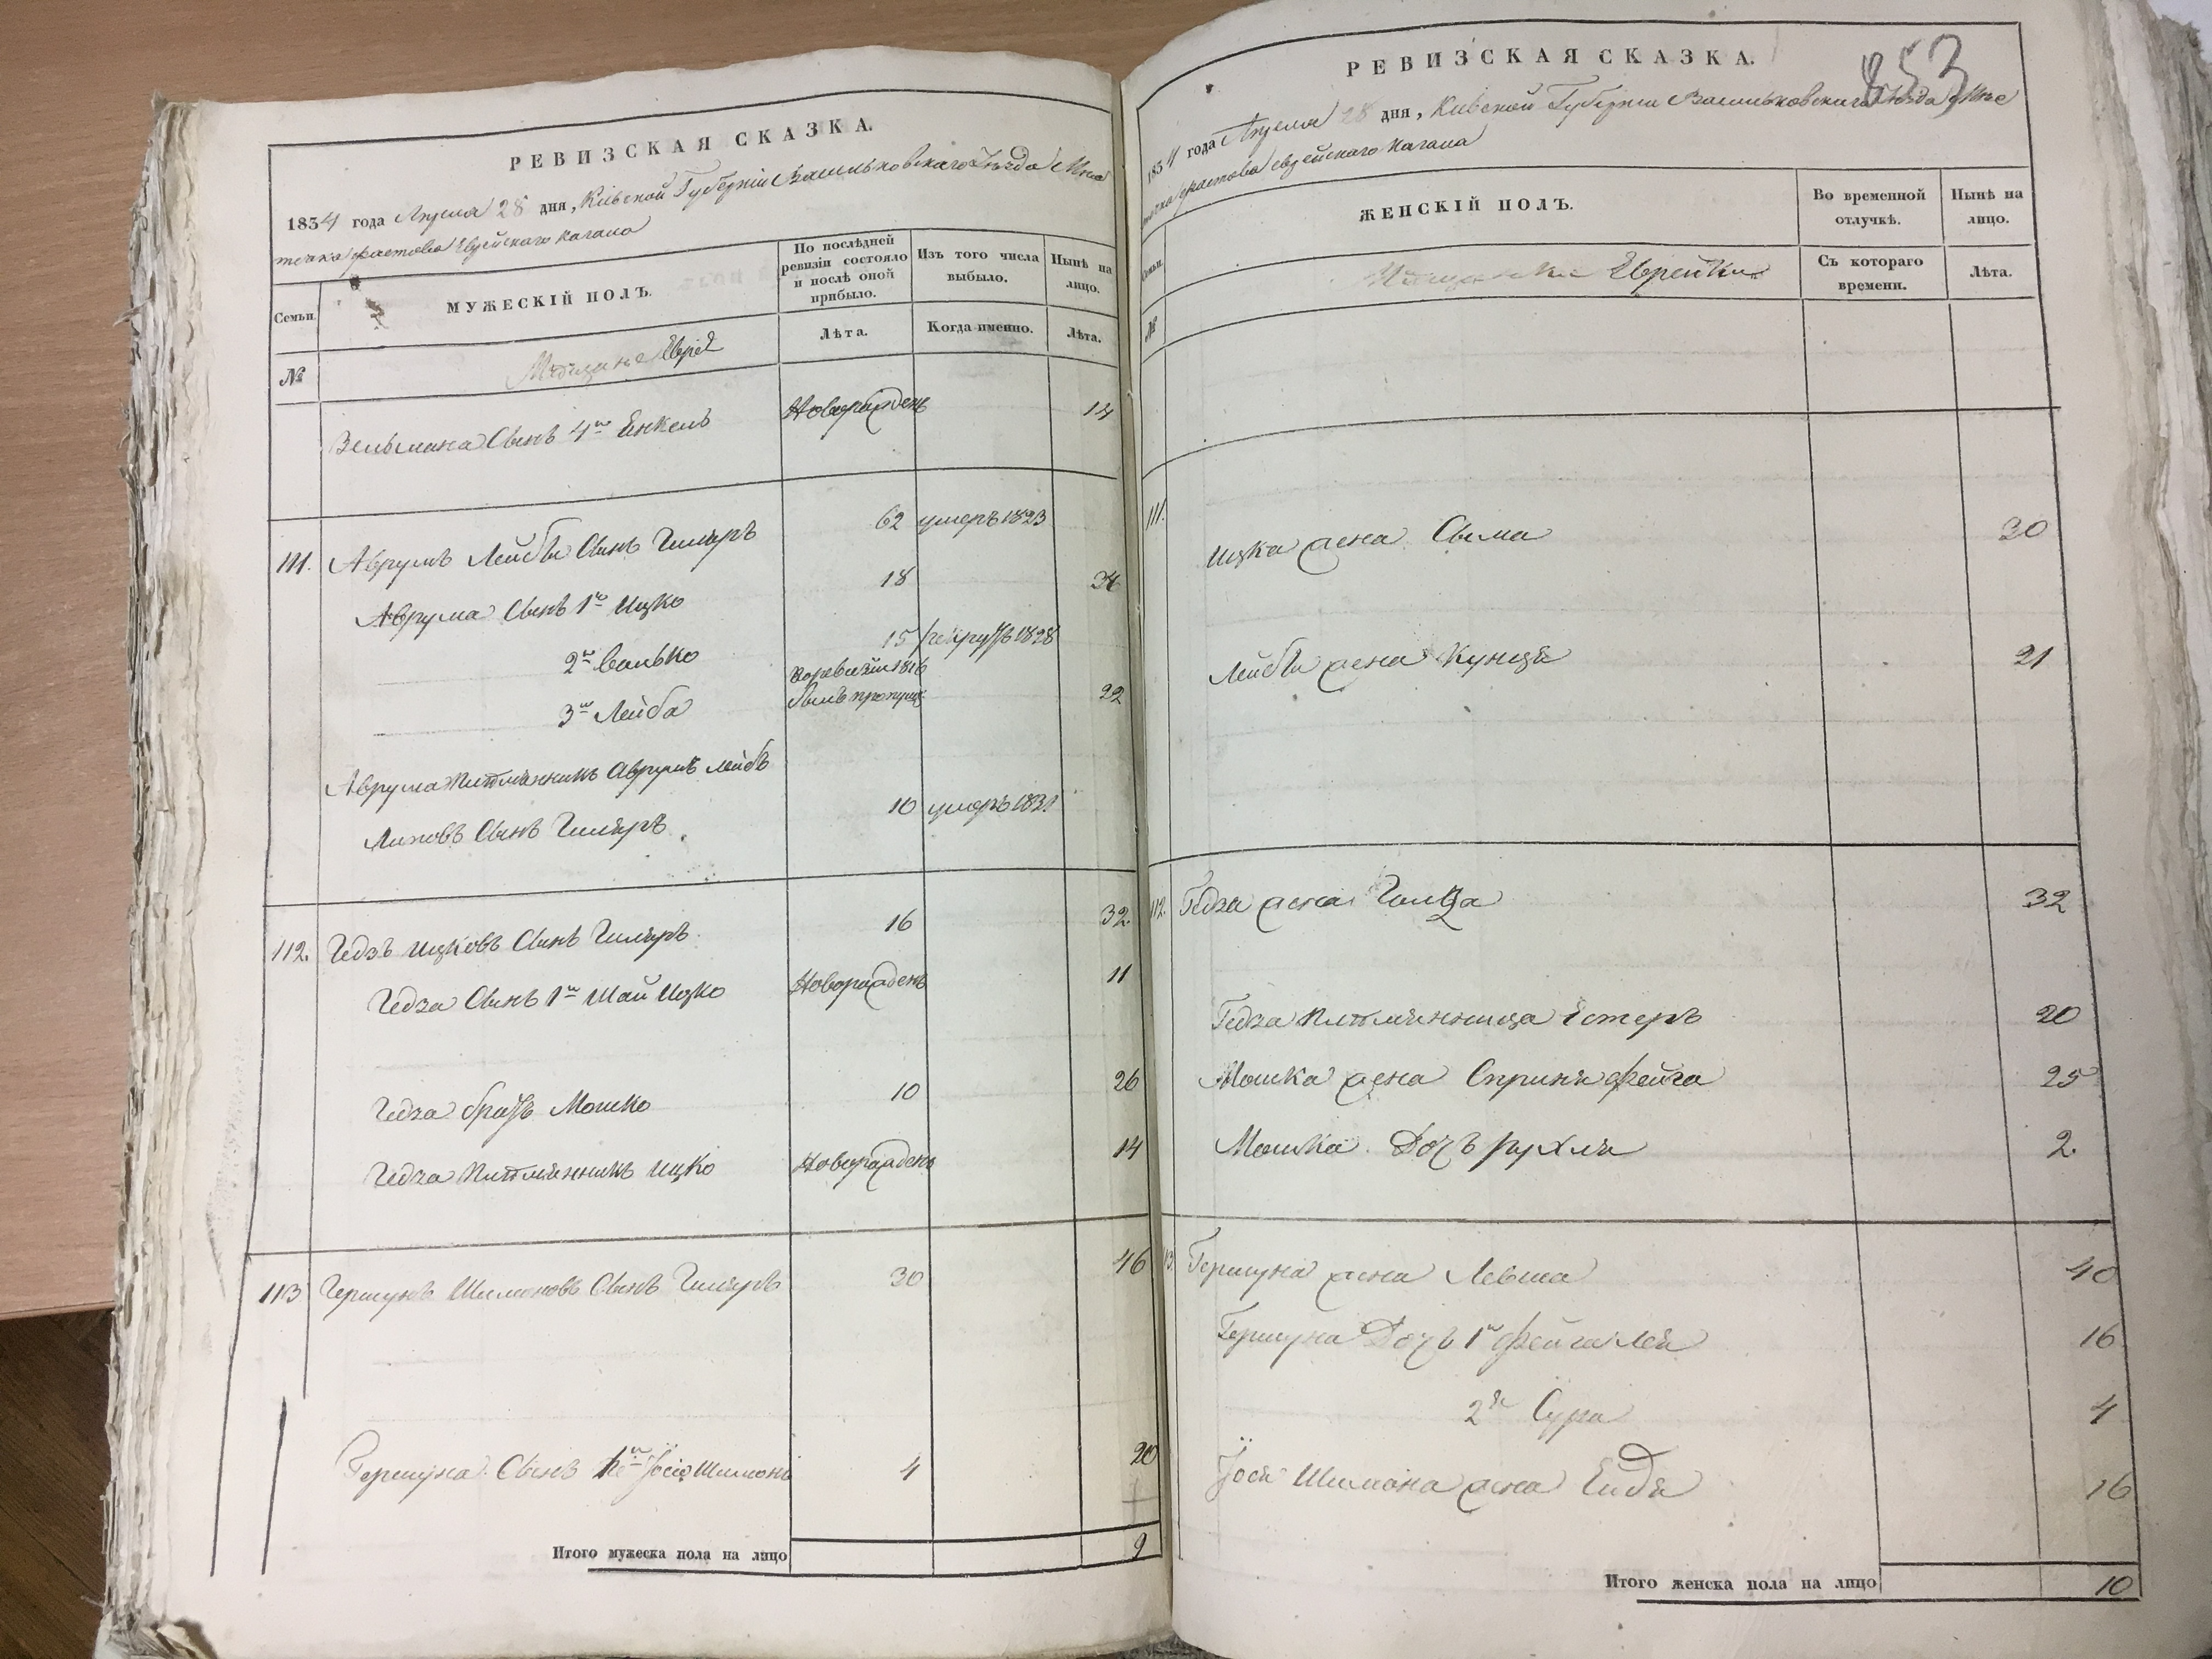 РЕВИЗСКАЯ СКАЗКА.
1834 года Апреля 28 дня, Кіевской Губерніи Васильковскаго Уѣзда Мѣс
течка Фастова Еврейскаго Кагала
Семьи.
МУЖЕСКІЙ ПОЛЪ.
По послѣдней ревизіи состояло и послѣ оной прибыло.
Изъ того числа выбыло.
Нынѣ на лицо.
№
Мѣщане Евреи
Лѣта.
Когда именно.
Лѣта.
Зельмана Сынъ 4й Енкель Новорожденъ 14
111. Аврумъ Лейбы Сынъ 62 умеръ 1823
Аврума Сынъ 1й Ицко 18 34
2й Волько 15 рекрутъ 1828
3й Лейба въ ревизіи 1816 былъ пропущ 22
Аврума племянникъ Аврумъ Лейбъ
Липовъ Сынъ 10 умеръ 1831
112. Гедзъ Ицковъ Сынъ 16 32.
Гедза Сынъ 1й Шай Ицко Новорожденъ 11
Гедза братъ Мошко 10 26
Гедза племянникъ Ицко Новорожденъ 14
113 Гершунъ Шимоновъ Сынъ 30 46
Гершуна Сынъ 1й Іосіо Шимонъ 4 20
Итого мужеска пола на лицо 9
853
РЕВИЗСКАЯ СКАЗКА.
1834 года Апреля 28 дня, Кіевской Губерніи Васильковскаго Уѣзда Мѣс
течка Фастова Еврейскаго Кагала
Семьи.
ЖЕНСКІЙ ПОЛЪ.
Во временной отлучкѣ.
Нынѣ на лицо.
№
Мѣщанки Еврейки
Съ котораго времени.
Лѣта.
111. Ицка жена Сыма 30
Лейбы жена Кунця 21
112. Гедза жена 32
Гедза племянница Естеръ 20
Мошка жена Сприня Фейга 25
Мошка Дочь Рухля 2.
113. Гершуна жена 40
Гершуна Дочь 1я Фейга Лея 16
2я Сура 4
Іося Шимона жена 16
Итого женска пола на лицо 10